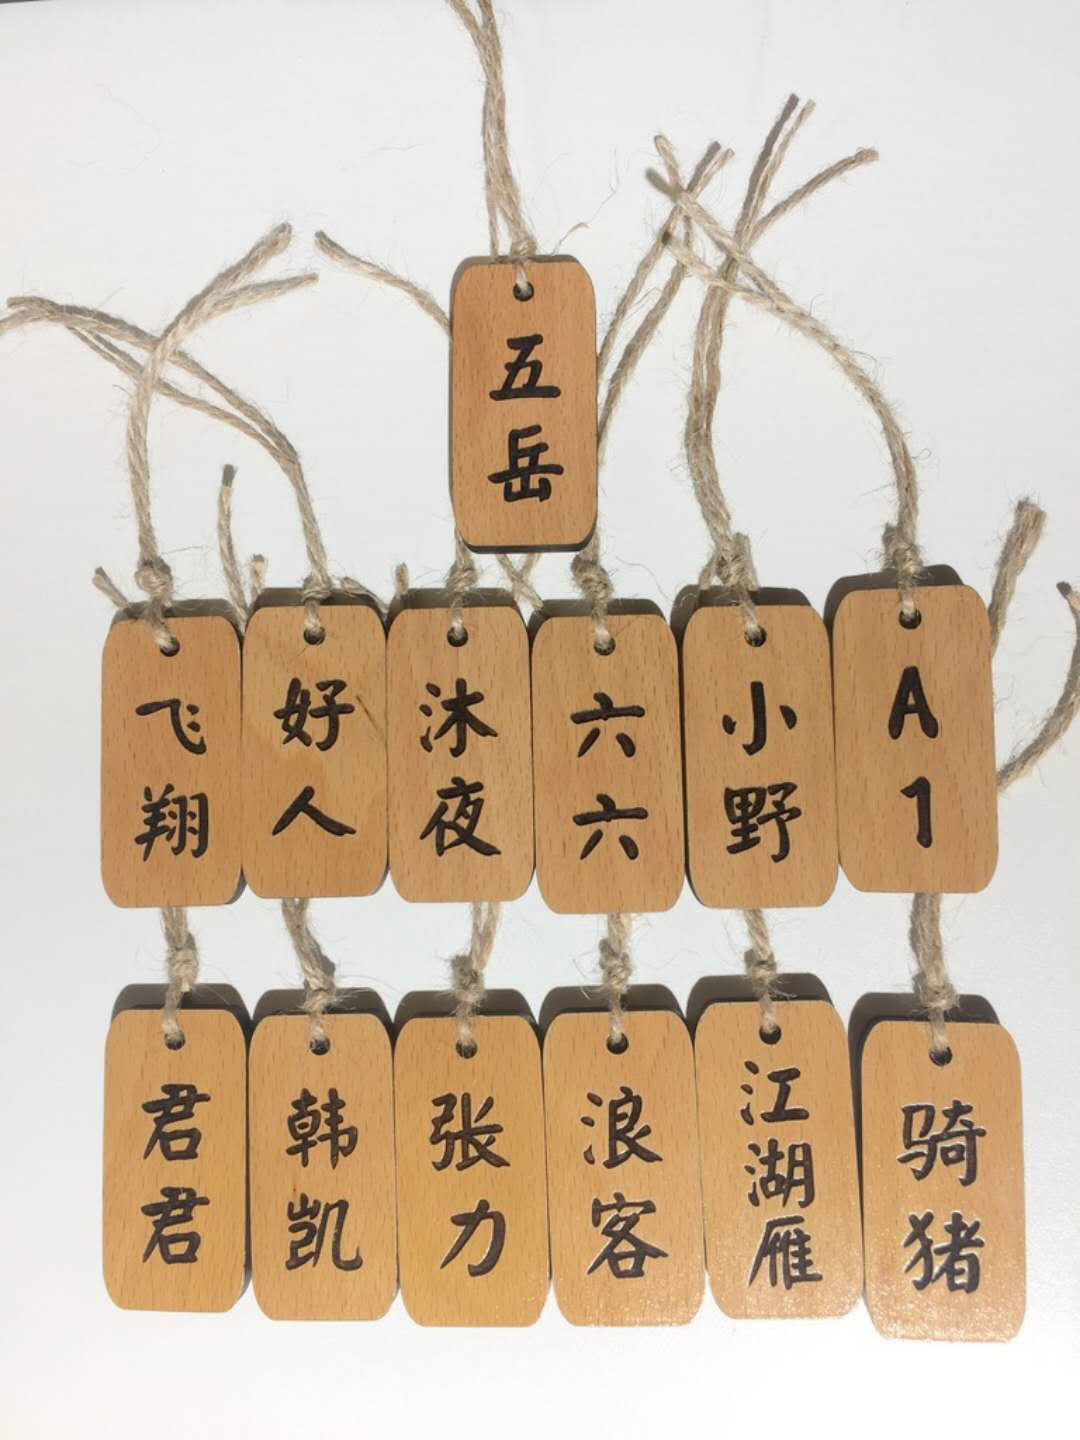 五岳
飞翔
好人
沐夜
六六
小野
A1
君君
韩凯
张力
浪客
江湖雁
骑猪